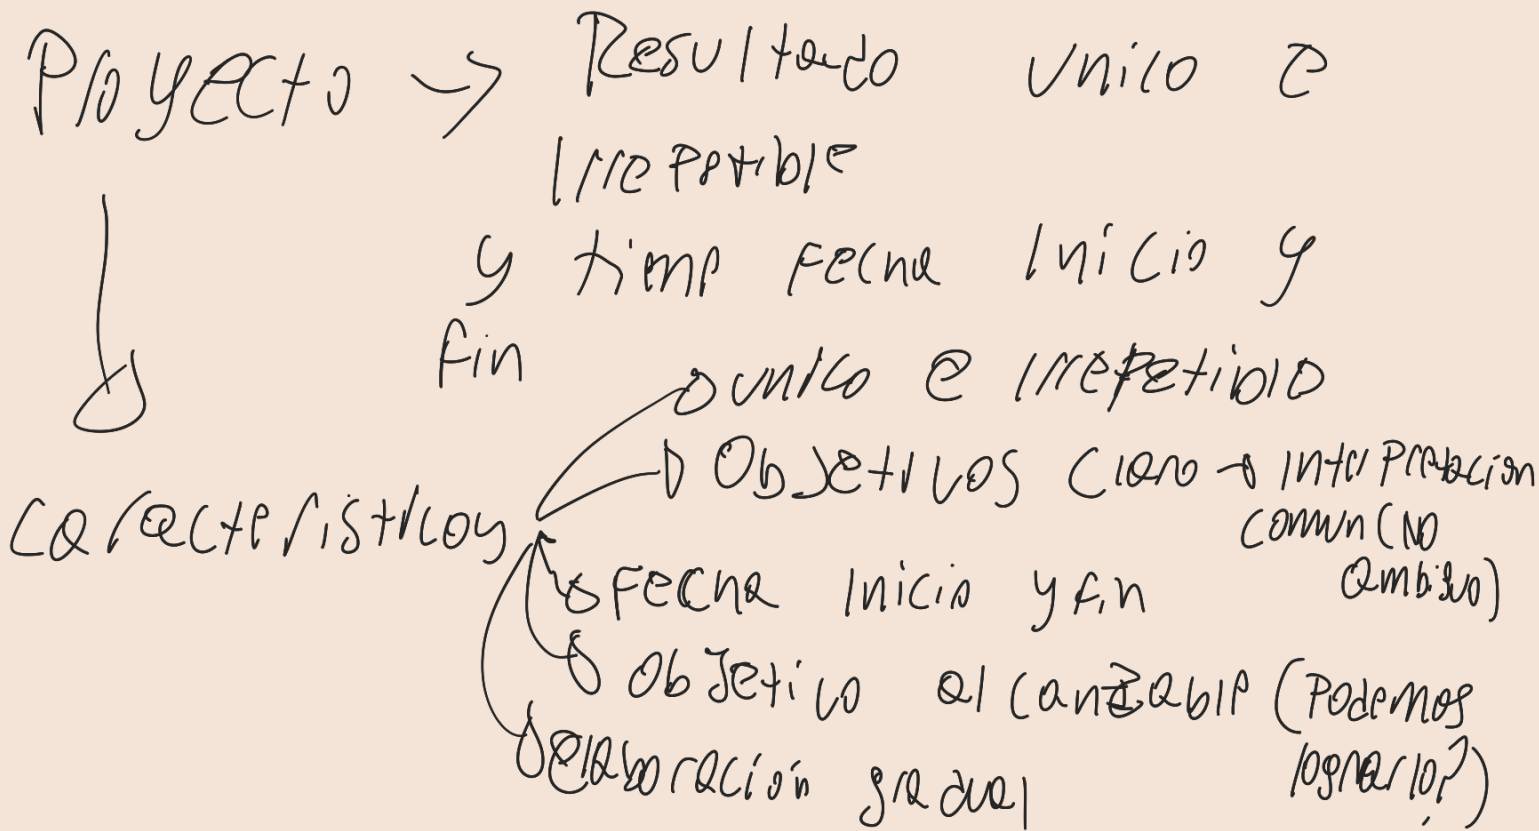 Proyecto → Resultado unico e
Irrepetible
y tiene fecha Inicio y
fin
unico e irrepetible
Objetivos claro → interpretación
comun (No
ambiguo)
Caracteristicas
Fecha Inicio y fin
Objetivo alcanzable (Podemos
lograrlo?)
elaboración gradual